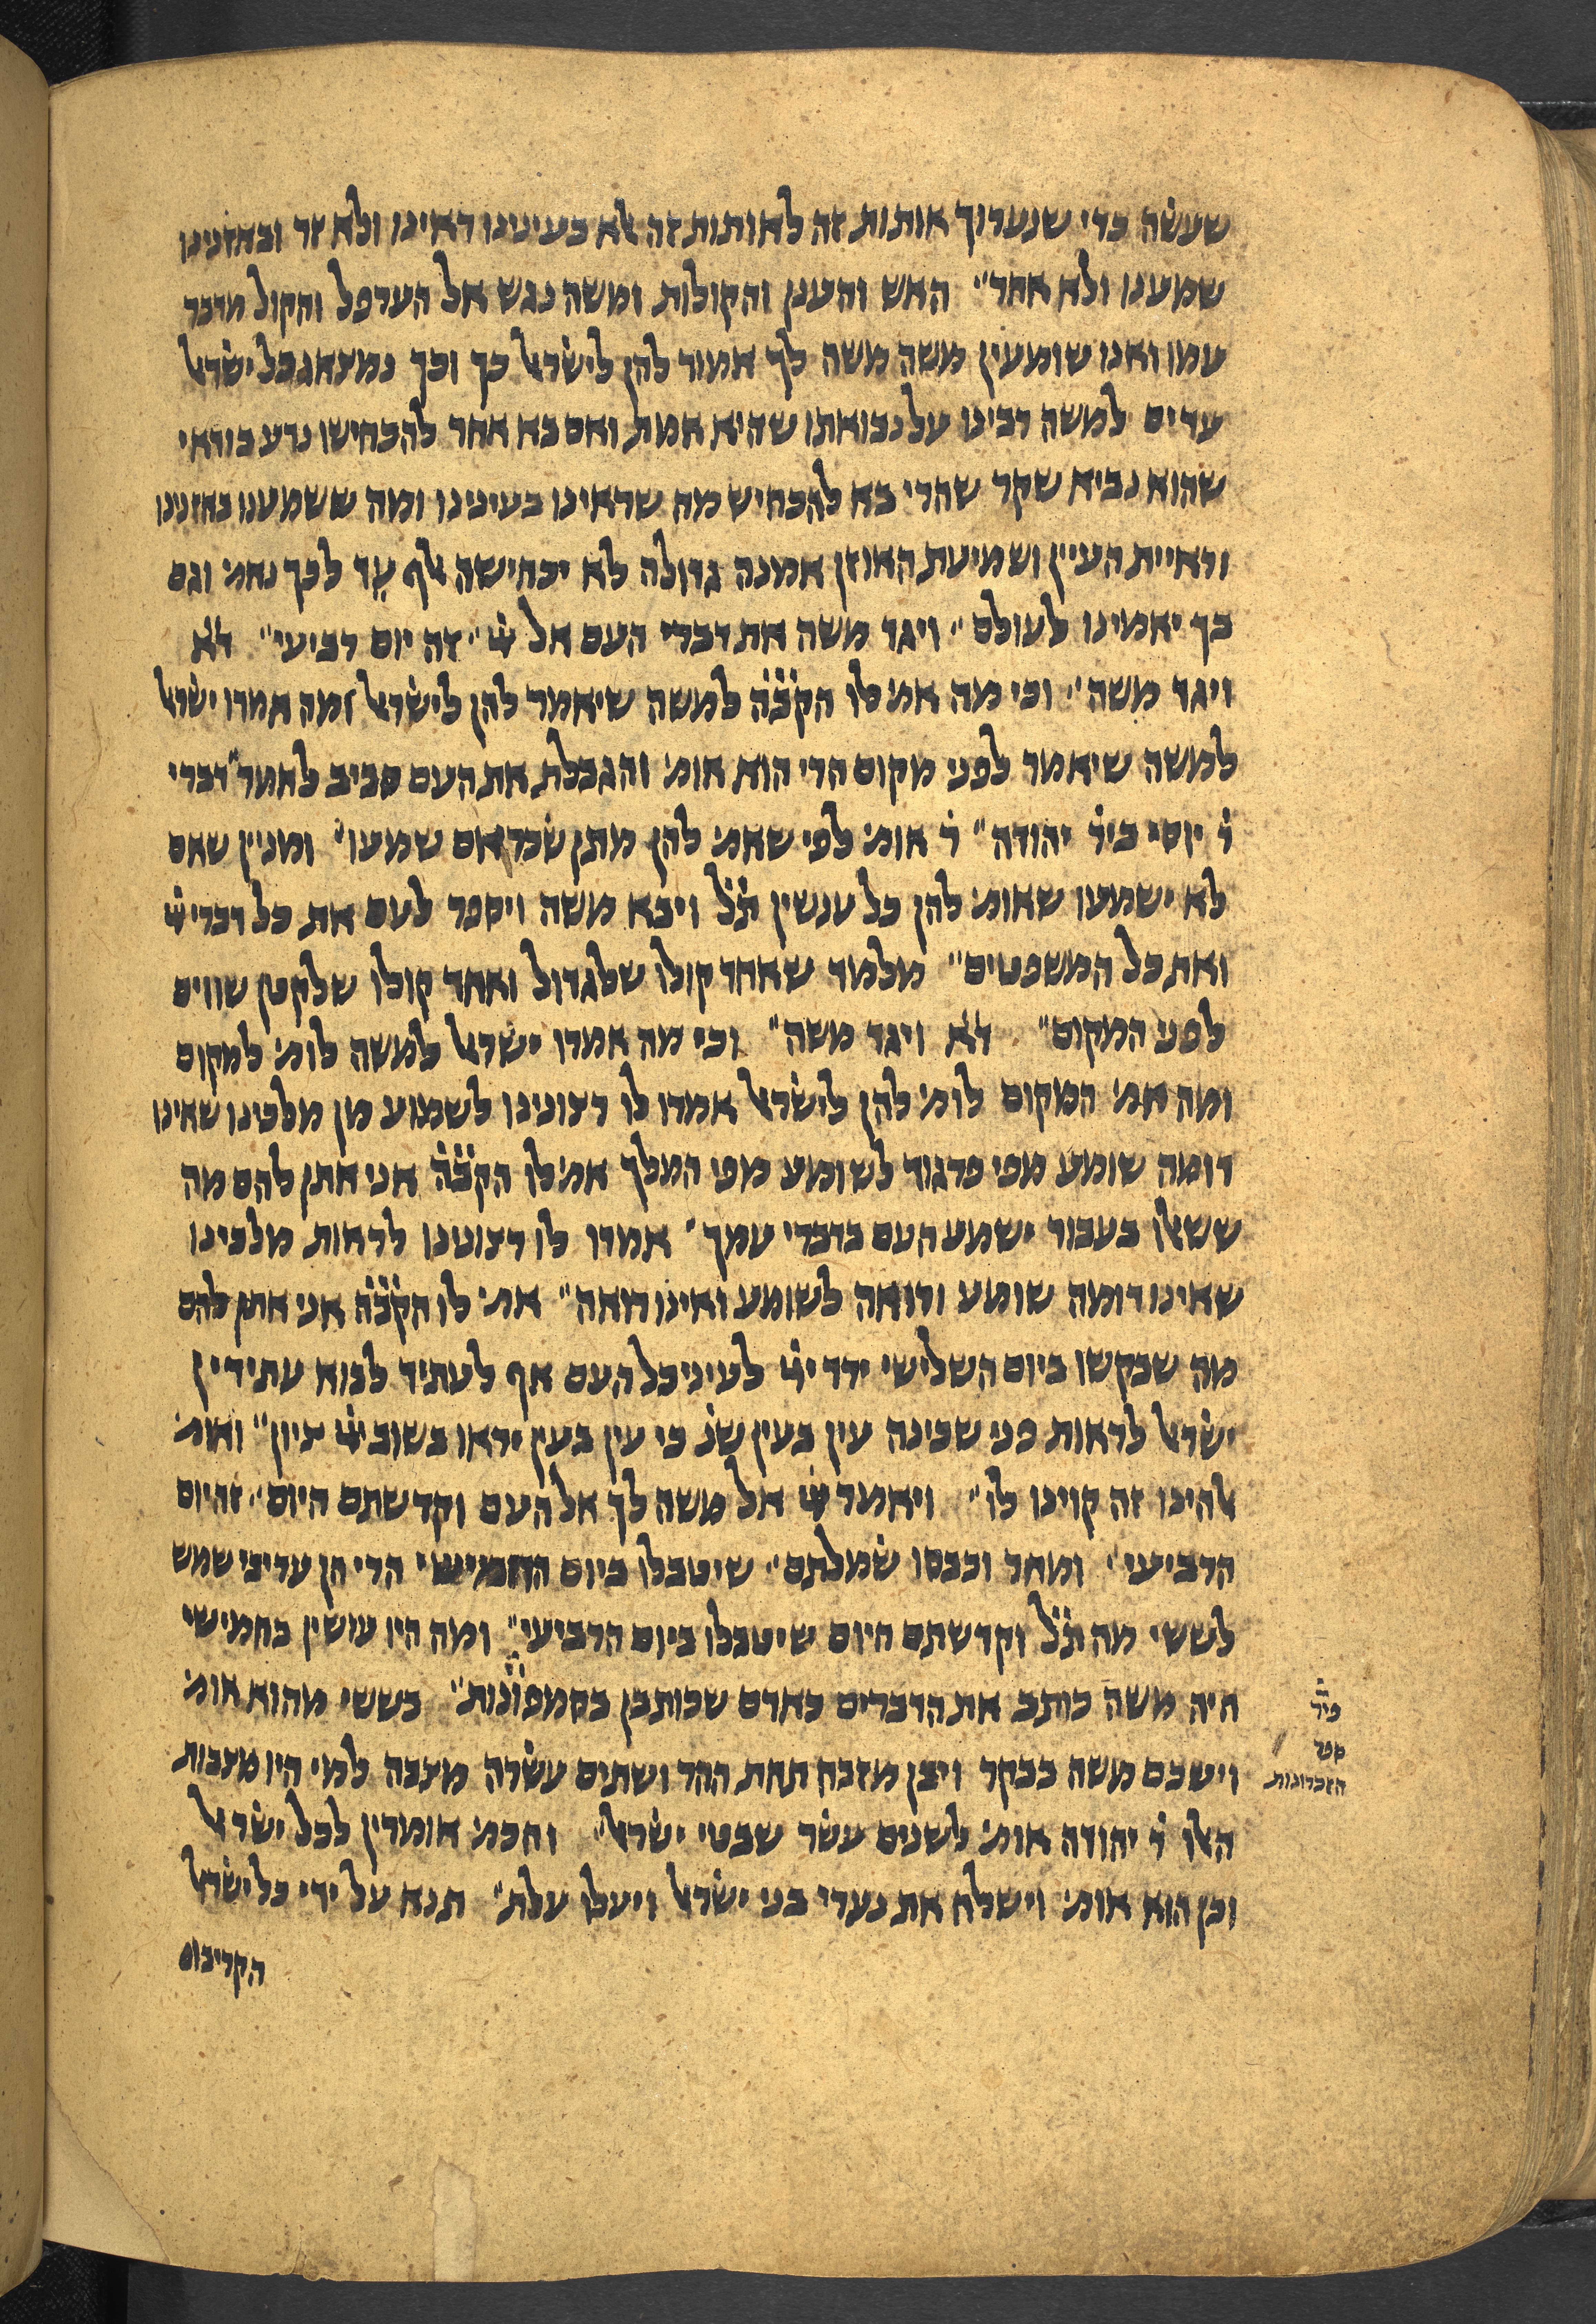 שעשה כדי שנערוך אותות זה לאותות זה אלא בעינינו ראינו ולא זר ובאזנינו
שמענו ולא אחר״ האש והענן והקולות ומשה נגש אל הערפל והקול מדבר
עמו ואנו שומעין משה משה לך אמור להן לישראל כך וכך נמצאו כל ישראל
עדים למשה רבינו על נבואתו שהיא אמת ואם בא אחר להכחישו נדע בודאי
שהוא נביא שקר שהרי בא להכחיש מה שראינו בעינינו ומה ששמענו באזנינו
וראיית העיין ושמיעת האוזן אמנה גדולה לא יכחישה אלף עד לכך נאמ׳ וגם
בך יאמינו לעולם״ ויגד משה את דברי העם אל יי׳ זה יום רביעי״ ד״א
ויגד משה״ וכי מה אמ׳ לו הקב״ה למשה שיאמר להן לישראל ומה אמרו ישראל
למשה שיאמר לפני מקום הרי הוא אומ׳ והגבלת את העם סביב לאמר״ דברי
ר׳ יוסי ביר׳ יהודה״ ר׳ אומ׳ לפי שאמ׳ להן מתן שכר אם שמעו״ ומניין שאם
לא ישמעו שאומ׳ להן כל ענשין ת״ל ויבא משה ויספר לעם את כל דברי יי׳
ואת כל המשפטים״ מלמד שאחד קולו שלגדול ואחד קולו שלקטן שווים
לפני המקום״ ד״א ויגד משה״ וכי מה אמרו ישראל למשה לומ׳ למקום
ומה אמ׳ המקום לומ׳ להן לישראל אמרו לו רצונינו לשמוע מן מלכינו שאינו
דומה שומע מפי פרגוד לשומע מפי המלך אמ׳ לו הקב״ה אני אתן להם מה
ששאלו בעבור ישמע העם בדברי עמך״ אמרו לו רצונינו לראות מלכינו
שאינו דומה שומע ורואה לשומע ואינו רואה״ אמ׳ לו הקב״ה אני אתן להם
מה שבקשו ביום השלישי ירד יי׳ לעיני כל העם אף לעתיד לבוא עתידין
ישראל לראות פני שכינה עין בעין שנ׳ כי עין בעין יראו בשוב יי׳ ציון״ ואמ׳
אלהינו זה קוינו לו״ ויאמר יי׳ אל משה לך אל העם וקדשתם היום״ זה יום
הרביעי״ ומחר וכבסו שמלתם״ שיטבלו ביום החמישי הרי הן עריבי שמש
לששי מה ת״ל וקדשתם היום שיטבלו ביום הרביעי״ ומה היו עושין בחמישי
היה משה כותב את הדברים כאדם שכותבן בקמפונות״ בששי מהוא אומ׳
וישכם משה בבקר ויבן מזבח תחת ההר ושתים עשרה מצבה למי היו מצבות
האלו ר׳ יהודה אומ׳ לשנים עשר שבטי ישראל״ וחכמ׳ אומרין לכל ישראל
וכן הוא אומ׳ וישלח את נערי בני ישראל ויעלו עלת״ תנא על ידי כל ישראל
הקריבום
פיר׳
ספר
הזכרונות